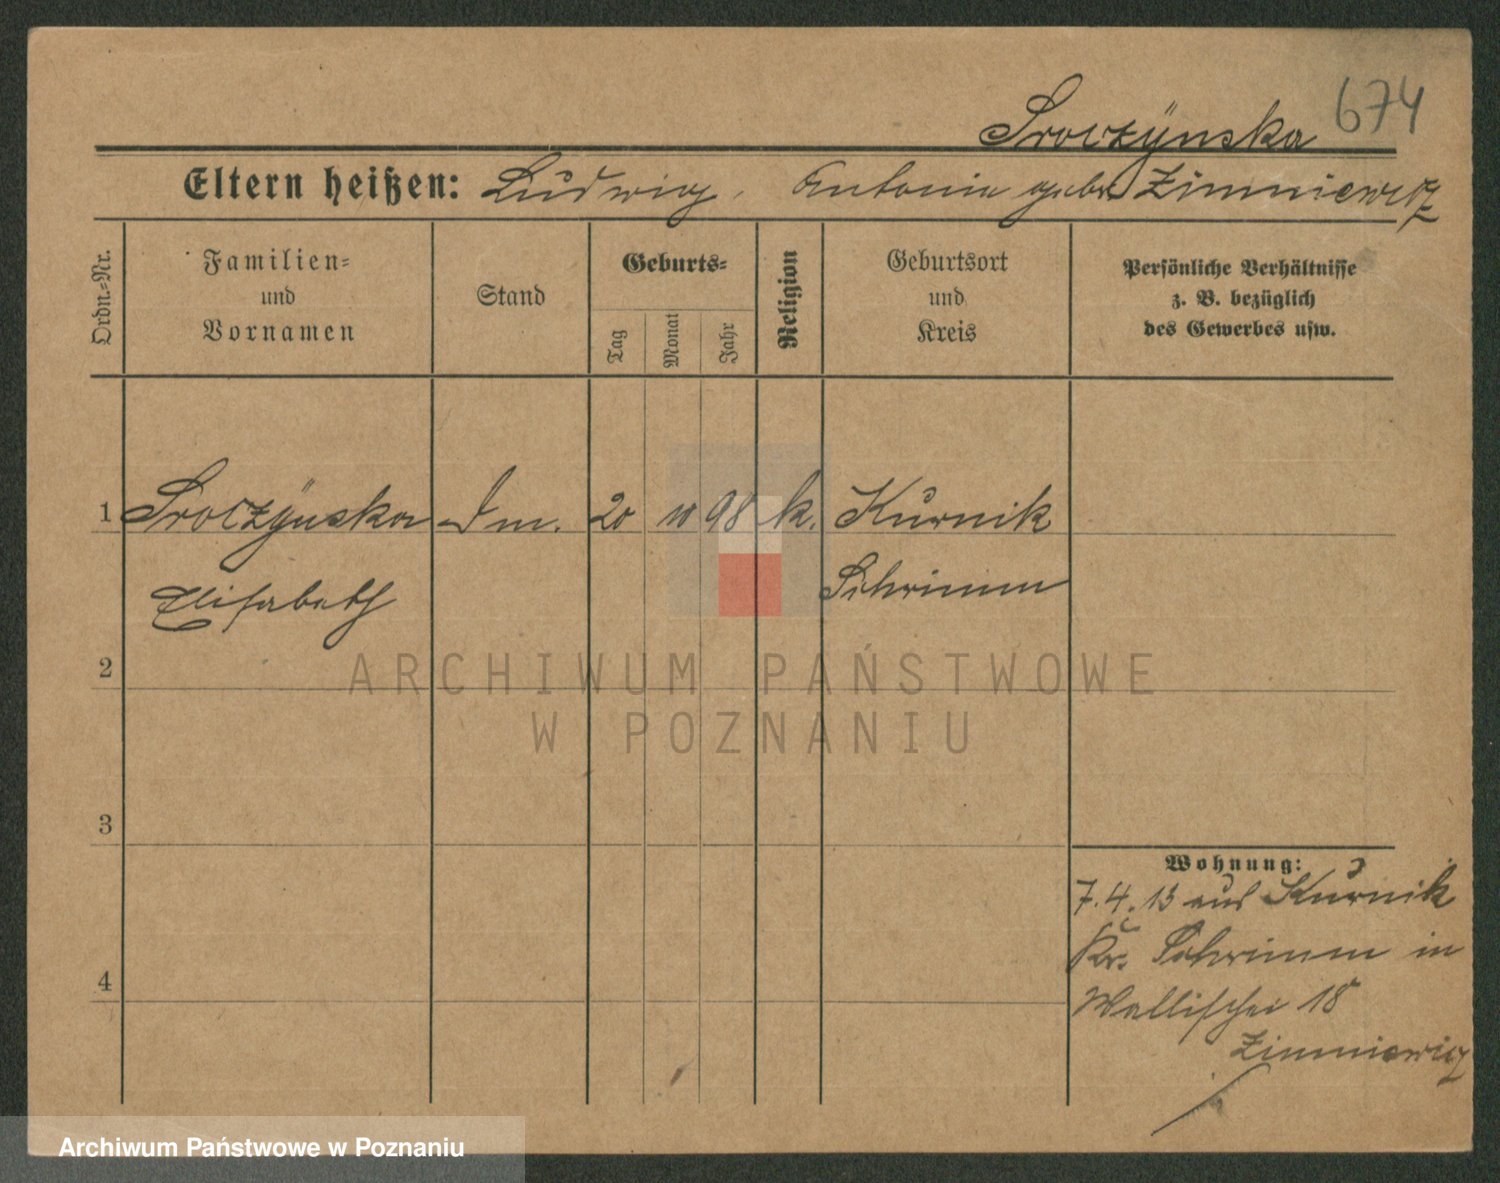 674
Sroczÿnska
Eltern heißen: Ludwig, Antonia geb. Zimniewicz
Ordn.-Nr.
Familien-
und
Vornamen
Stand
Geburts-
Tag
Monat
Jahr
Religion
Geburtsort
und
Kreis
Persönliche Verhältnisse
z. B. bezüglich
des Gewerbes usw.
1 Sroczÿnska 20 10 98 k. Kurnik
Elisabeth Schrimm
2
3
4
Wohnung:
7.4.13 aus Kurnik
Kr. Schrimm in
Wallischei 18
Zimniewicz
ARCHIWUM PAŃSTWOWE
W POZNANIU
Archiwum Państwowe w Poznaniu